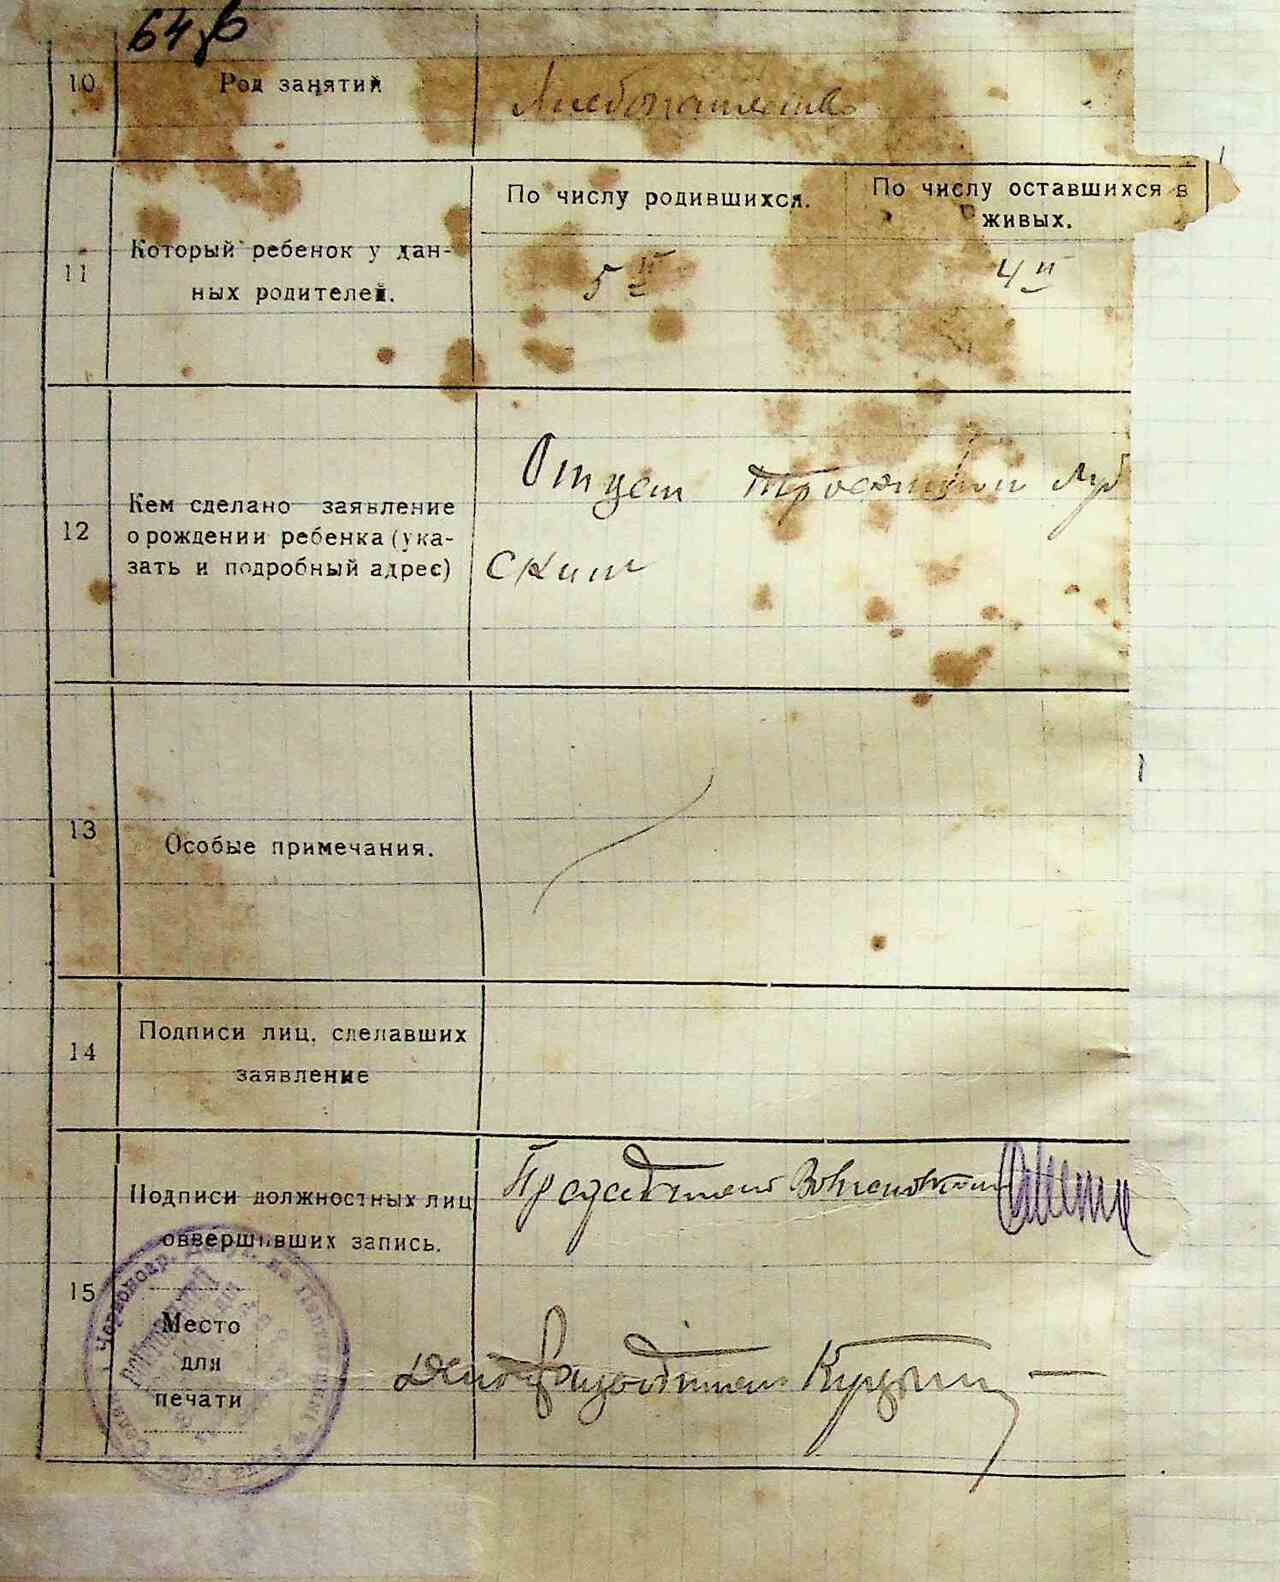 10
Род занятий
Хлебопашество
11
Который ребенок у дан-
ных родителей.
По числу родившихся.
По числу оставшихся в
живых.
5й
4й
12
Кем сделано заявление
о рождении ребенка (ука-
зать и подробный адрес)
Отцем
ским
13
Особые примечания.
14
Подписи лиц, сделавших
заявление
15
Подписи должностных лиц
совершивших запись.
Председатель
Место
для
печати
Делопроизводитель